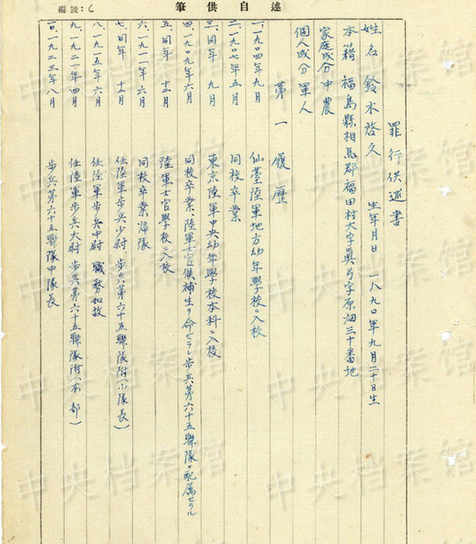 自述供筆
編號:6
罪行供述書
姓名 鈴木啓久 生年月日 一八九〇年九月二十日生
本籍 福島縣相馬郡福田村大字真弓字原畑三十番地
家庭成分 中農
個人成分 軍人
第一 履歴
一、一九〇四年九月 仙台陸軍地方幼年學校ニ入校
二、一九〇七年五月 同校卒業
三、同年 九月 東京陸軍中央幼年學校本科ニ入校
四、一九〇九年六月 同校卒業 陸軍士官候補生ヲ命セラレ歩兵第六十五聯隊ニ配属セラル
五、同年 十二月 陸軍士官學校ニ入校
六、一九一一年六月 同校卒業 帰隊
七、同年 十二月 任陸軍歩兵少尉 歩兵第六十五聯隊附(小隊長)
八、一九一五年六月 任陸軍歩兵中尉 職務如故
九、一九二二年四月 任陸軍歩兵大尉 歩兵第六十五聯隊附(本部)
一〇、一九二三年八月 歩兵第六十五聯隊中隊長
中央档案館